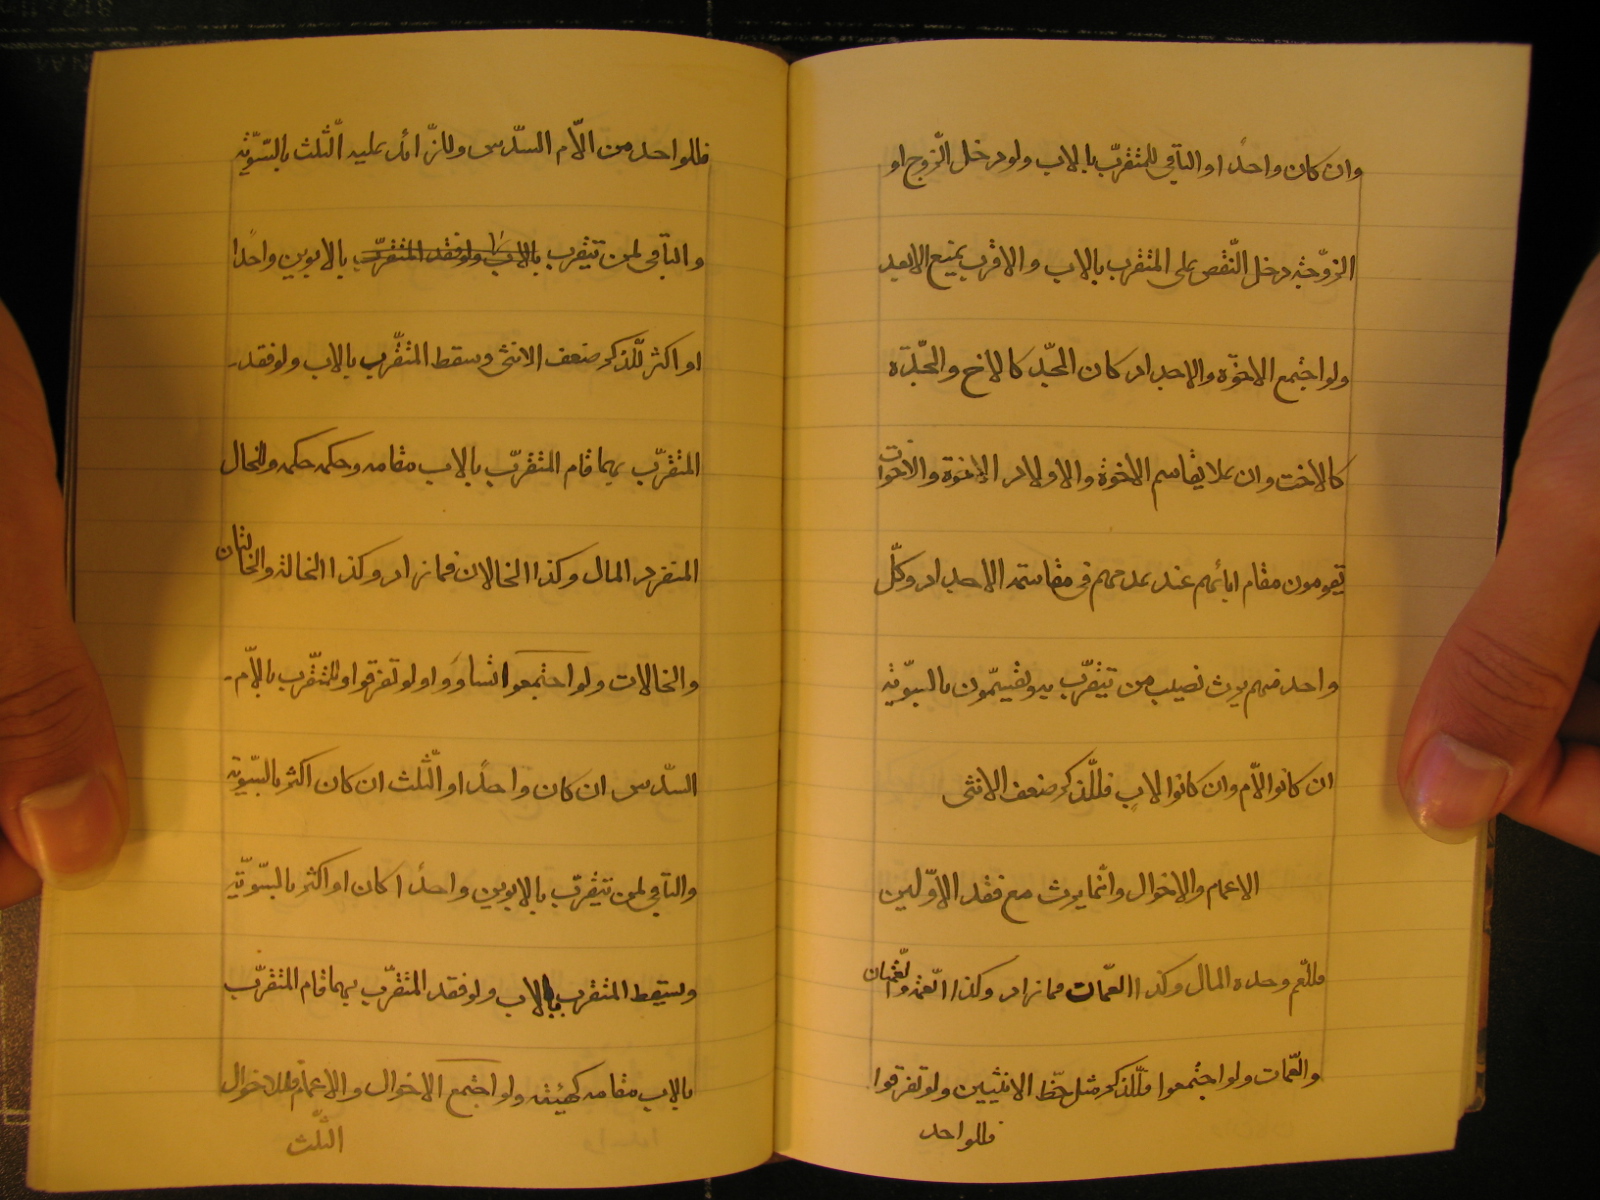 وان كان واحدًا والباقى للمتقرّب بالاب ولو دخل الزّوج او
الزوّجة دخل النّقص على المتقرب بالاب والاقرب يمنع الابعد
ولو اجتمع الاخوّة والاجداد كان الجدّ كالاخ والجّدة
كالاخت وان علا يقاسم الاخوة والاولاد الاخوة والاخوات
يقومون مقام ابائهم عند عدمهم فى مقاسمة الاجداد وكلّ
واحد منهم يرث نصيب من يتقرّب به ويقتسمون بالسويّة
ان كانوا لأم وان كانوا لاب فللّذكر ضعف الانثى
الاعمام والاخوال وانّما يرث مع فقد الاوّلين
فللعّم وحده المال وكذا العمّان فما زاد وكذا العّمة والعّمتان
والعّمات ولو اجتمعوا فللّذكر مثل حظّ الانثيين ولو تفرقوا
فللواحد
فللواحد من الاّم السدّس وللزّائد عليه الّثلث بالسّويّة
والباقى لمن يتقرب بالاب ولو فقد المتقرّب بالابوين واحدًا
او اكثر للّذكر ضعف الانثى وسقط المتقّرب بالاب ولو فقد
المتقرّب بهما قام المتقرّب بالاب مقامه وحكمه حكمه وللخال
المنفرد المال وكذا الخالان فما زاد وكذا الخالة والخالتان
والخالات ولو اجتمعوا تساووا ولو تفرقوا فللمتقّرب بالاّم
السدّس ان كان واحدًا والّثلث ان كان اكثر بالسّويّة
والباقى لمن يتقرّب بالابوين واحدًا كان او اكثر بالسّويّة
وسقط المتقرب بالاب ولو فقد المتقرّب بهما قام المتقرّب
بالاب مقامه كهيئته ولو اجتمع الاخوال والاعمام فللاخوال
الثّلث